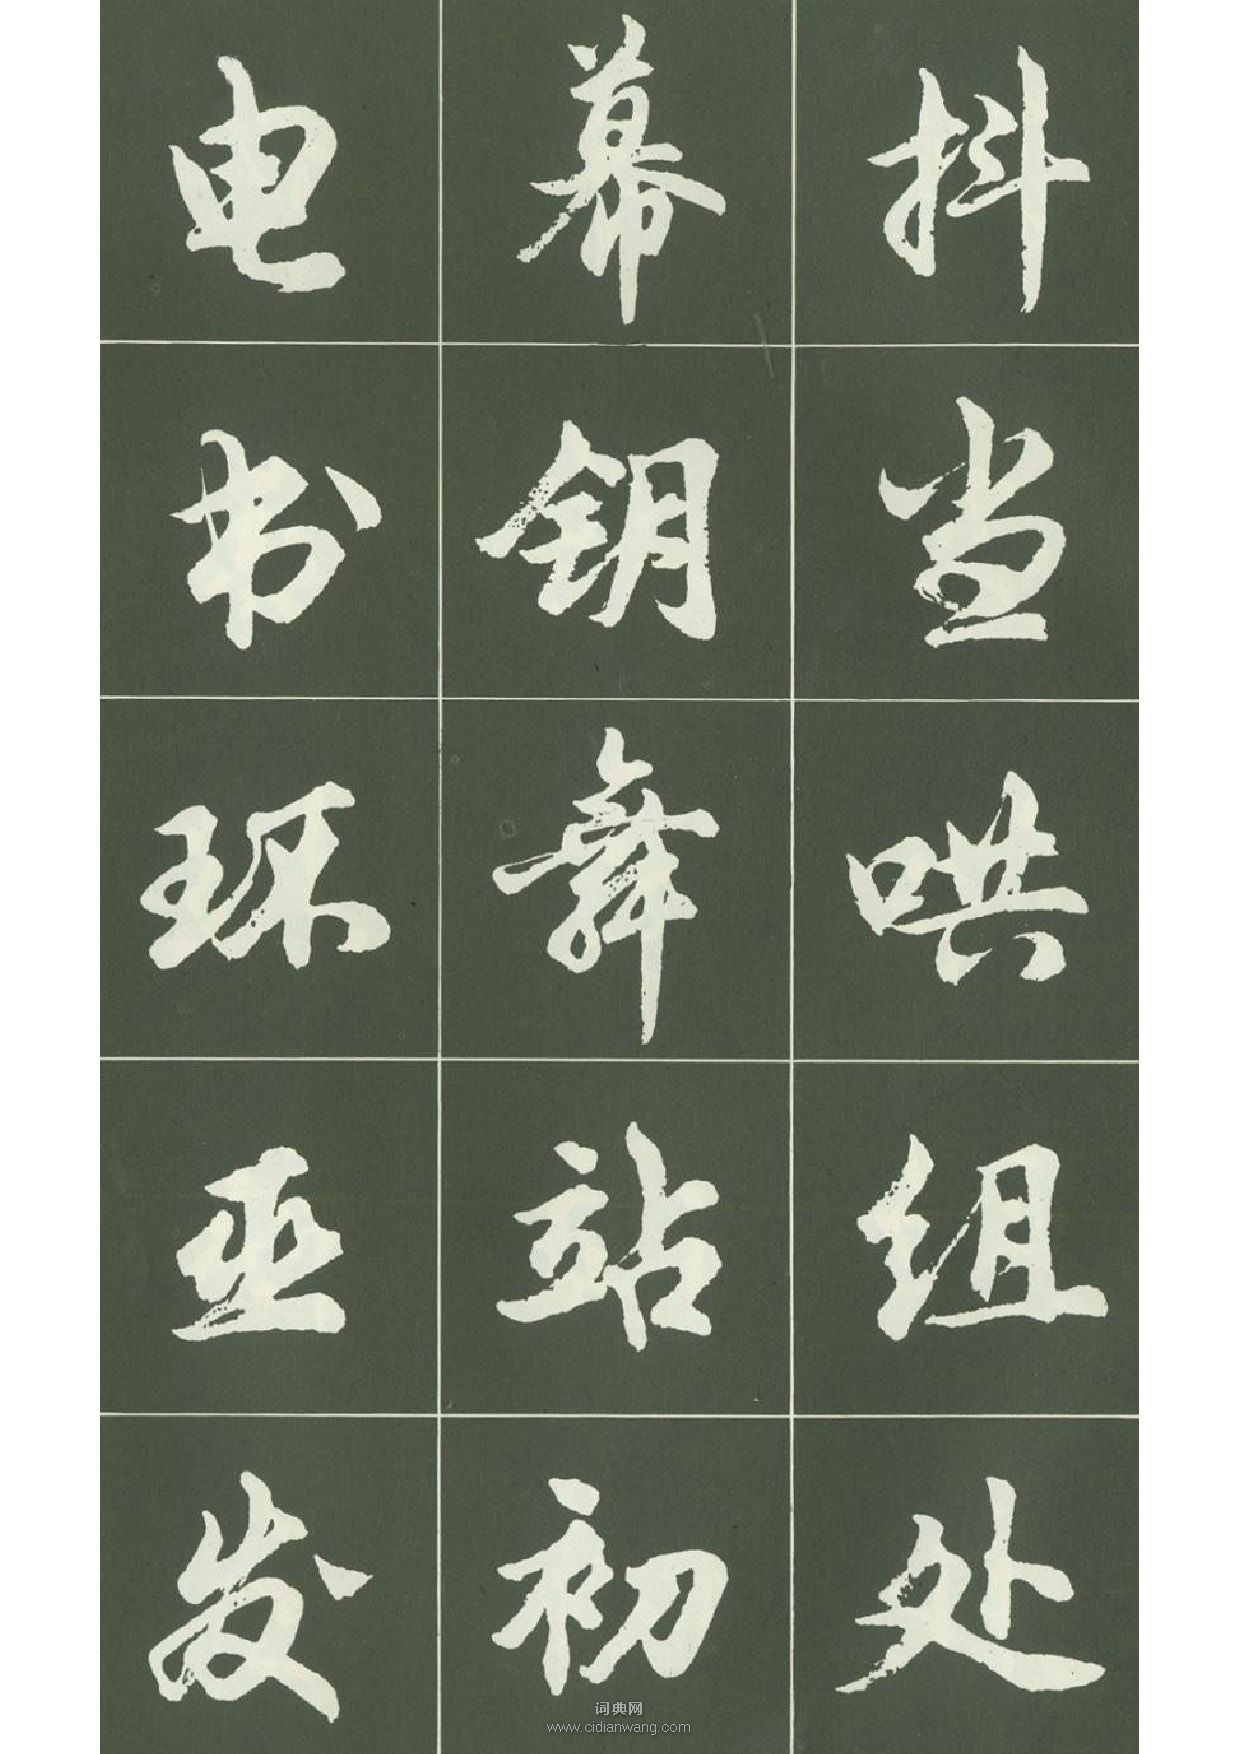 电幕抖
书钥当
环舞哄
亚站组
发初处
词典网
www.cidianwang.com